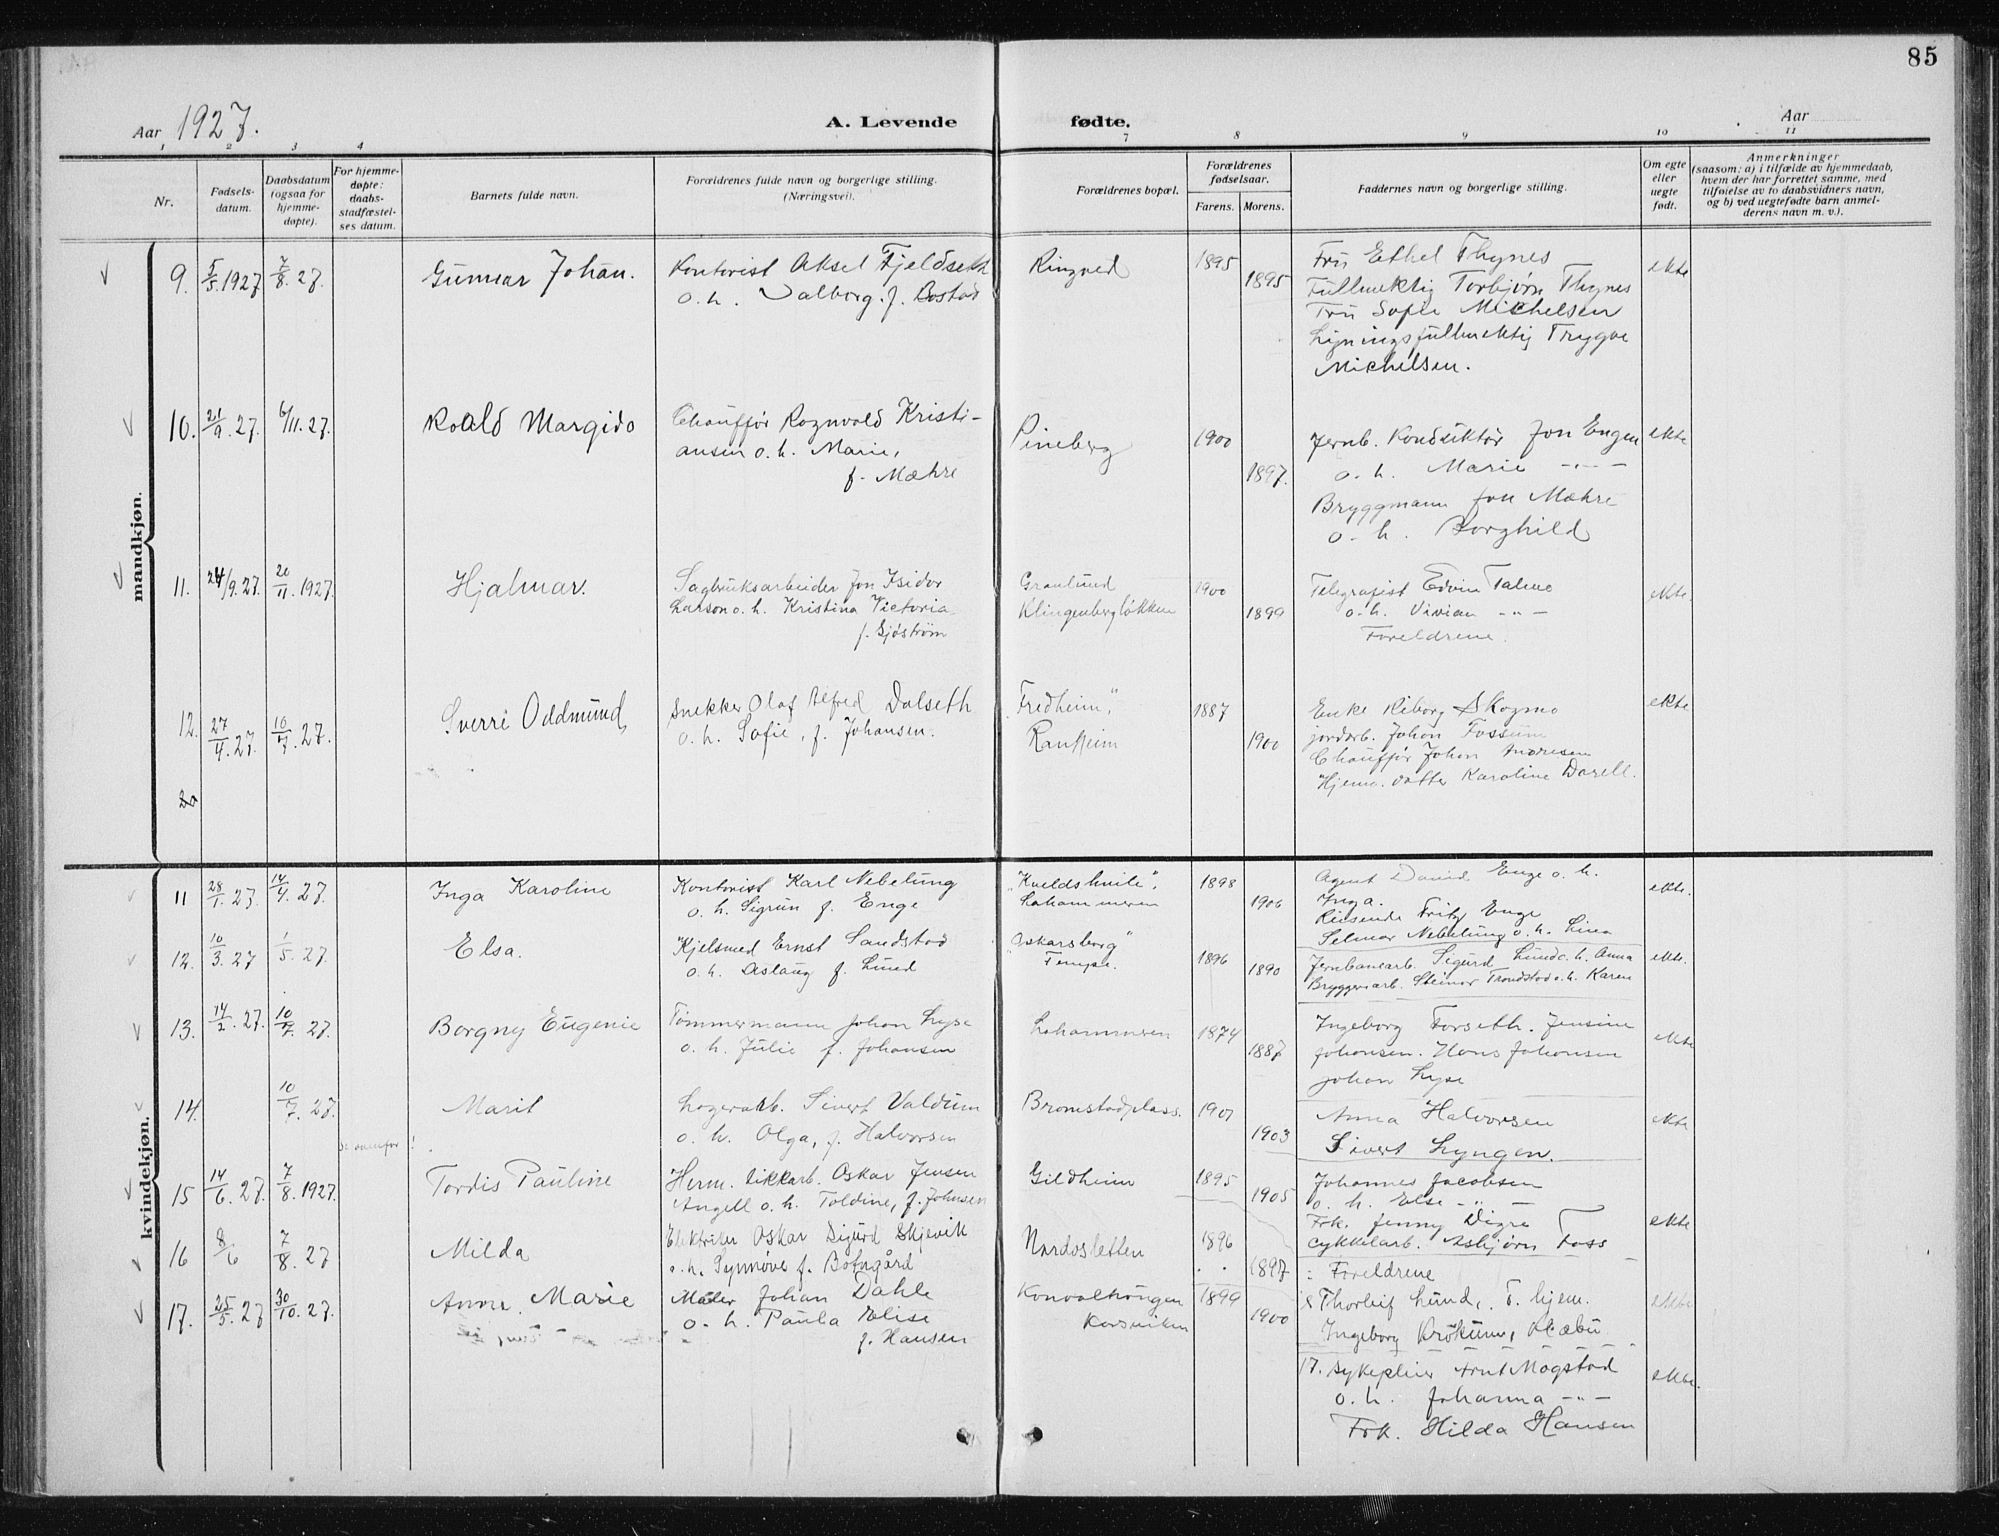 85
Aar 1927.
A. Levende fødte.
Aar
1 2 3 4 7 8 9 10 11
Nr.
Fødsels-
datum.
Daabsdatum
(ogsaa for
hjemme-
døpte).
For hjemme-
døpte:
daabs-
stadfæstel-
ses datum.
Barnets fulde navn.
Forældrenes fulde navn og borgerlige stilling.
(Næringsvei).
Forældrenes bopæl.
Forældrenes
fødselsaar.
Farens. Morens.
Faddernes navn og borgerlige stilling.
Om egte
eller
uegte
født.
Anmerkninger
(saasom: a) i tilfælde av hjemmedaab,
hvem der har forrettet samme, med
tilføielse av to daabsvidners navn,
og b) ved uegtefødte barn anmel-
derens navn m. v.).
mandkjøn.
9. 5/5.1927 7/8.27. Gunnar Johan. Kontorist Aksel Fjeldseth Ringved 1895 Fru Ethel Thynes ekte
o. h. Valborg. f. Bostad 1895 Fullmektig Torbjørn Thynes
Fru Sofie Michelsen
Ligningsfullmektig Trygve
Michelsen.
10. 21/9.27. 6/11.27. Roald Margido Chauffør Ragnvald Kristi- Pineberg 1900 Jernb. Konduktør Jon Engen ekte
ansen o. h. Marie, 1897. o. h. Marie -"-
f. Mæhre Bryggmann Jon Mæhre
o. h. Borghild
11. 24/9.27. 20/11.1927. Hjalmar. Sagbruksarbeider Jon Isidor Granlund 1900 Telegrafist Edvin Talmo ekte.
Larson o. h. Kristina Victoria Klingenbergløkken 1899 o. h. Vivian -"-
f. Sjöström Foreldrene.
12. 27/4.27. 10/7.27. Sverre Oddmund, Snekker Olaf Alfred Dalseth "Fredheim", 1887 Enke Riborg Skogmo ekte
o. h. Sofie, f. Johansen. Ranheim 1900 jordarb. Johan Fossum
Chauffør Johan Andresen
Hjemv. datter Karoline Darell.
kvindekjøn.
11 28/1.27. 14/4.27. Inga Karoline Kontorist Karl Nebelung "Kveldshvile", 1898 Agent David Enge o. h. ekte.
o. h. Sigrun f. Enge Lohammeren 1906 Inga.
Reisende Fritz Enge
Selmar Nebelung o. h. Lina
12. 10/3.27 1/5.27. Elsa. Kjelsmed Ernst Sandstad "Oskarsborg" 1896 Jernbanearb. Sigurd Lund o. h. Anna ekte.
o. h. Aslaug f. Lund Tempe. 1890 Bryggeriarb. Steinar Trondstad o. h. Karen
13. 14/2.27. 10/7.27. Borgny Eugenie Tømmermann Johan Lyse Lohammeren 1874 Ingeborg Forseth. Jensine ekte
o. h. Julie f. Johansen 1887 Johansen. Hans Johansen
Johan Lyse
14. 10/7.27. Marit Lagerarb. Sivert Valdum Bromstadplass. 1901 Anna Halvorsen ekte
o. h. Olga, f. Halvorsen 1903 Sivert Lyngen.
15 14/6.27. 7/8.1927. Tordis Pauline Herm. tikkarb. Oskar Jensen Gildheim 1895 Johannes Jacobsen
Angell o. h. Toldine, f. Johnsen 1905 o. h. Else -"-
Frk. Jenny Digre ekte
16 8/6 7/8.27 Milda Elektriker Oskar Sigurd Skjevik Nardosletten 1896 Cykkelarb. Asbjørn Foss
o. h. Synnøve f. Botngård 1897 Foreldrene
17. 25/5.27 30/10.27. Anne Marie Maler Johan Dahle Konvalhaugen 1899 Thorleif Lund, F. hjem. ekte
o. h. Paula Elise Korsviken 1900 Ingeborg Krokum, Klæbu
f. Hansen
17. Sykepleier Arnt Mogstad ekte.
o. h. Johanna -"-
Frk. Hilda Hansen